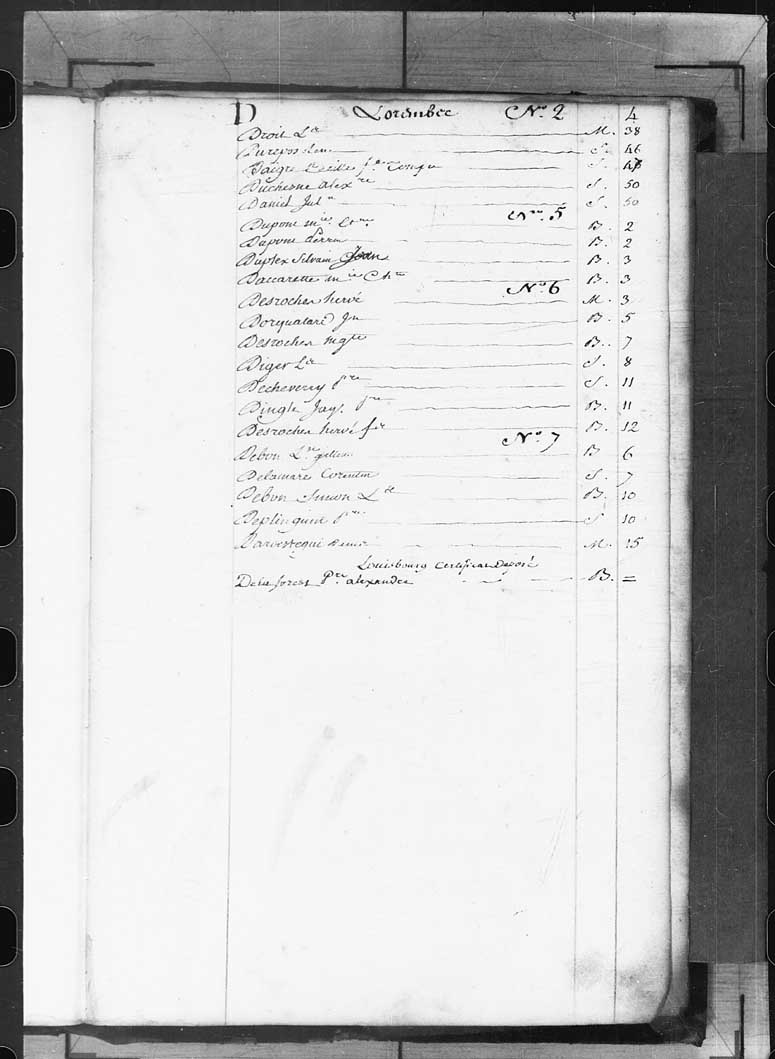 D Lorembec No. 2 4
Droit Lse M. 38
S. 46
Daigre Cecille S.
Duchesne alexre S. 50
Daniel Juln S. 50
No. 5
Dupont B. 2
Dupont Perrin B. 2
Duplex Silvain Jean B. 3
Daccarette mie Chne B. 3
No. 6
Desroches hervé M. 3
Jn B. 5
Desroches B. 7
Diger S. 8
Decheverry pre S. 11
Dingle Jaq. B. 11
Desroches hervé fs B. 12
No. 7
Debon B 6
Delamare Corentin S. 7
Debon Simon B. 10
Deplinguin S 10
Darvestegui M. 15
Louisbourg Certificat Deposé
De la forest pre alexandre B. =